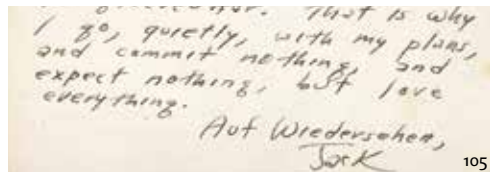 That is why
I go, quietly, with my plans,
and commit nothing, and
expect nothing, but love
everything.
Auf Wiedersehen,
Jack
105